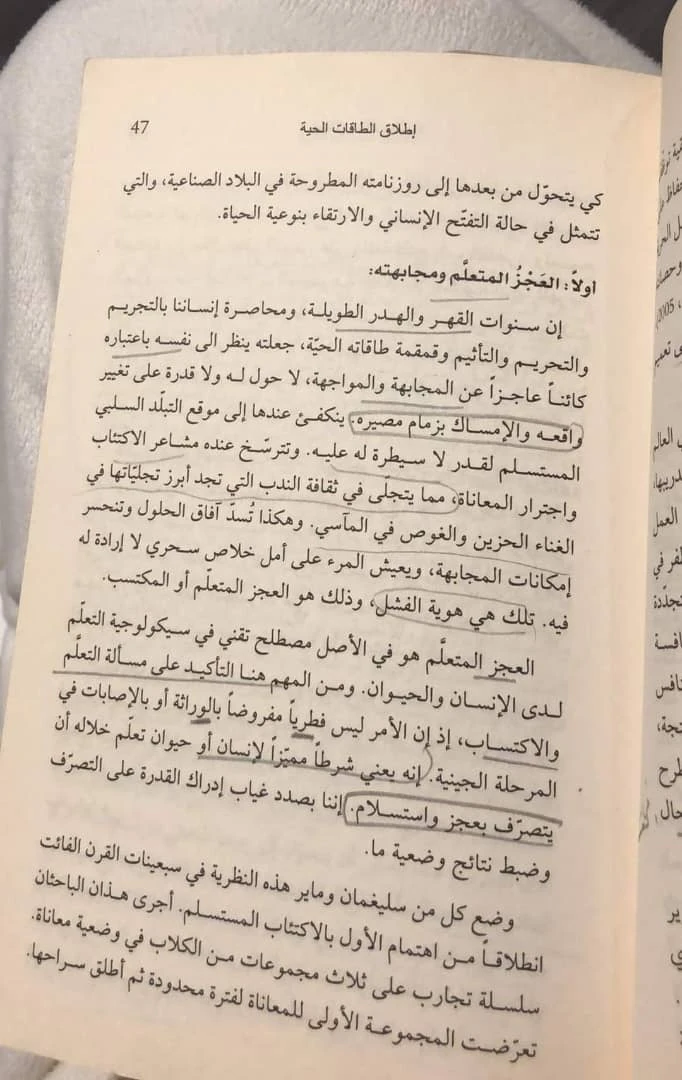 إطلاق الطاقات الحية
47
كي يتحوّل من بعدها إلى روزنامته المطروحة في البلاد الصناعية، والتي
تتمثل في حالة التفتّح الإنساني والارتقاء بنوعية الحياة.
اولاً: العَجْزُ المتعلَّم ومجابهته:
إن سنوات القهر والهدر الطويلة، ومحاصرة إنساننا بالتجريم
والتحريم والتأثيم وقمقمة طاقاته الحيّة، جعلته ينظر الى نفسه باعتباره
كائناً عاجزاً عن المجابهة والمواجهة، لا حول له ولا قدرة على تغيير
واقعه والإمساك بزمام مصيره. ينكفئ عندها إلى موقع التبلّد السلبي
المستسلم لقدر لا سيطرة له عليه. وتترسّخ عنده مشاعر الاكتئاب
واجترار المعاناة، مما يتجلّى في ثقافة الندب التي تجد أبرز تجليّاتها في
الغناء الحزين والغوص في المآسي. وهكذا تُسدّ آفاق الحلول وتنحسر
إمكانات المجابهة، ويعيش المرء على أمل خلاص سحري لا إرادة له
فيه. تلك هي هوية الفشل، وذلك هو العجز المتعلّم أو المكتسب.
العجز المتعلّم هو في الأصل مصطلح تقني في سيكولوجية التعلّم
لدى الإنسان والحيوان. ومن المهم هنا التأكيد على مسألة التعلّم
والاكتساب، إذ إن الأمر ليس فطرياً مفروضاً بالوراثة أو بالإصابات في
المرحلة الجينية. إنه يعني شرطاً مميّزاً لإنسان أو حيوان تعلّم خلاله أن
يتصرّف بعجز واستسلام. إننا بصدد غياب إدراك القدرة على التصرّف
وضبط نتائج وضعية ما.
وضع كل من سليغمان وماير هذه النظرية في سبعينات القرن الفائت
انطلاقاً من اهتمام الأول بالاكتئاب المستسلم. أجرى هذان الباحثان
سلسلة تجارب على ثلاث مجموعات من الكلاب في وضعية معاناة.
تعرّضت المجموعة الأولى للمعاناة لفترة محدودة ثم أطلق سراحها.